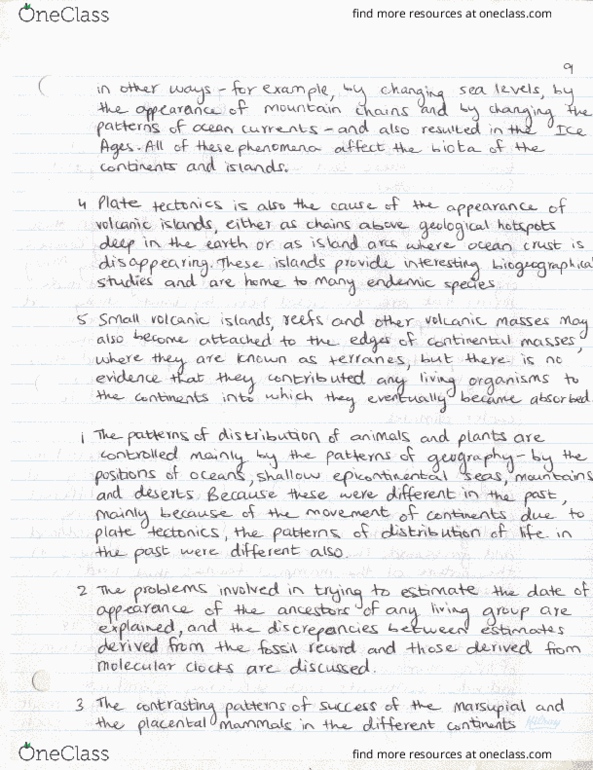 OneClass
find more resources at oneclass.com
9
in other ways - for example, by changing sea levels, by
the appearance of mountain chains and by changing the
patterns of ocean currents - and also resulted in the Ice
Ages. All of these phenomena affect the biota of the
continents and islands.
4 Plate tectonics is also the cause of the appearance of
volcanic islands, either as chains above geological hotspots
deep in the earth or as island arcs where ocean crust is
disappearing. These islands provide interesting biogeographical
studies and are home to many endemic species.
5 Small volcanic islands, reefs and other volcanic masses may
also become attached to the edges of continental masses,
where they are known as terranes, but there is no
evidence that they contributed any living organisms to
the continents into which they eventually became absorbed.
1 The patterns of distribution of animals and plants are
controlled mainly by the patterns of geography - by the
positions of oceans, shallow epicontinental seas, mountains
and deserts. Because these were different in the past,
mainly because of the movement of continents due to
plate tectonics, the patterns of distribution of life in
the past were different also.
2 The problems involved in trying to estimate the date of
appearance of the ancestors of any living group are
explained, and the discrepancies between estimates
derived from the fossil record and those derived from
molecular clocks are discussed.
3 The contrasting patterns of success of the marsupial and
the placental mammals in the different continents
OneClass
find more resources at oneclass.com